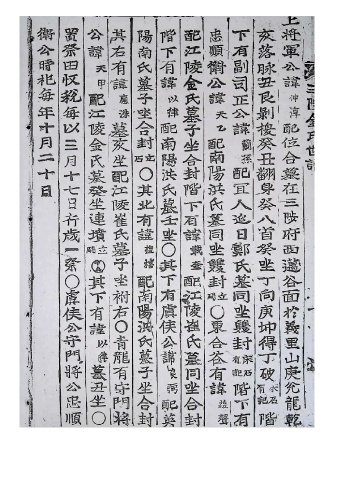 三陟金氏世譜
上將軍公諱仲淳配位合墓在三陟府西谷面於義里山庚兌龍乾
亥落脉丑艮剝換癸丑翻身癸八首癸坐丁向庚坤得丁破床石有記階
下有副司正公諱孫配宜人迎日鄭氏墓同坐雙封床石有記階下有
忠順衛公諱天乙配南陽洪氏墓同坐雙封○東合谷有諱應聲
配江陵金氏墓子坐合封階下有諱配江陵崔氏墓同坐合封
階下有諱以緯配南陽洪氏墓壬坐○其下有虞侯公諱配英
陽南氏墓子坐合封立石○其北有諱配南陽洪氏墓子坐合封
其右有諱應洙墓亥坐配江陵崔氏墓子坐祔右○青龍有守門將
公諱天甲配江陵金氏墓癸坐連墳○其下有諱以墓丑坐○
置祭田收稅每以三月十七日行歲一祭○虞侯公守門將公忠順
衛公時祀每年十月二十日